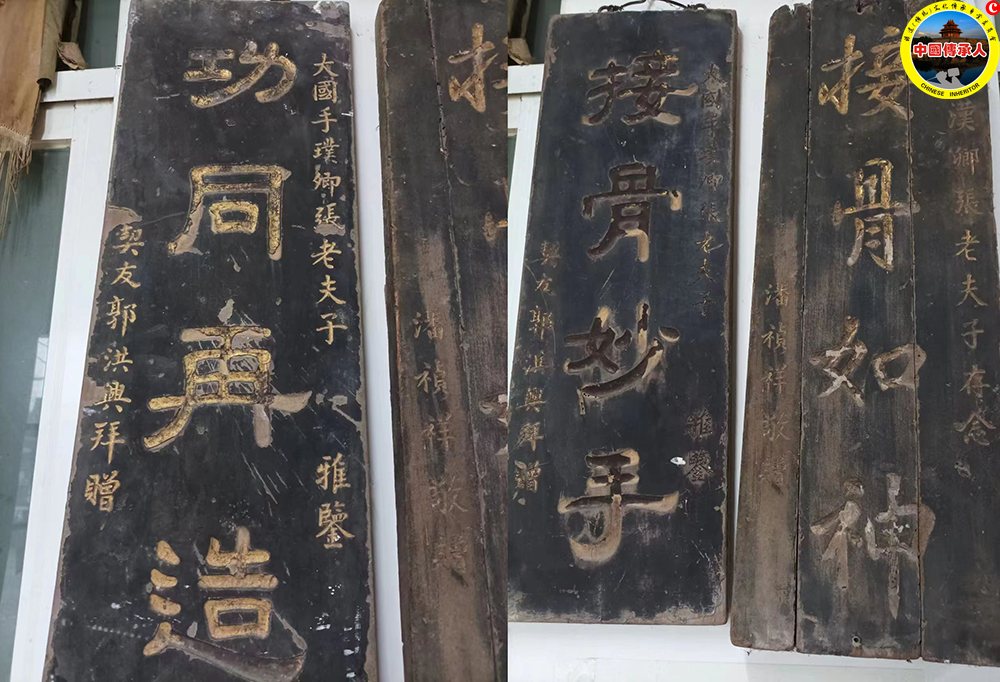 大國手璞卿張老夫子 雅鑒
功同再造
契友郭洪興拜贈
潘禎祥敬
張老夫子 雅鑒
接骨妙手
契友郭洪興拜贈
漢卿張老夫子存念
接骨如神
潘禎祥敬
中國傳承人
CHINESE INHERITOR